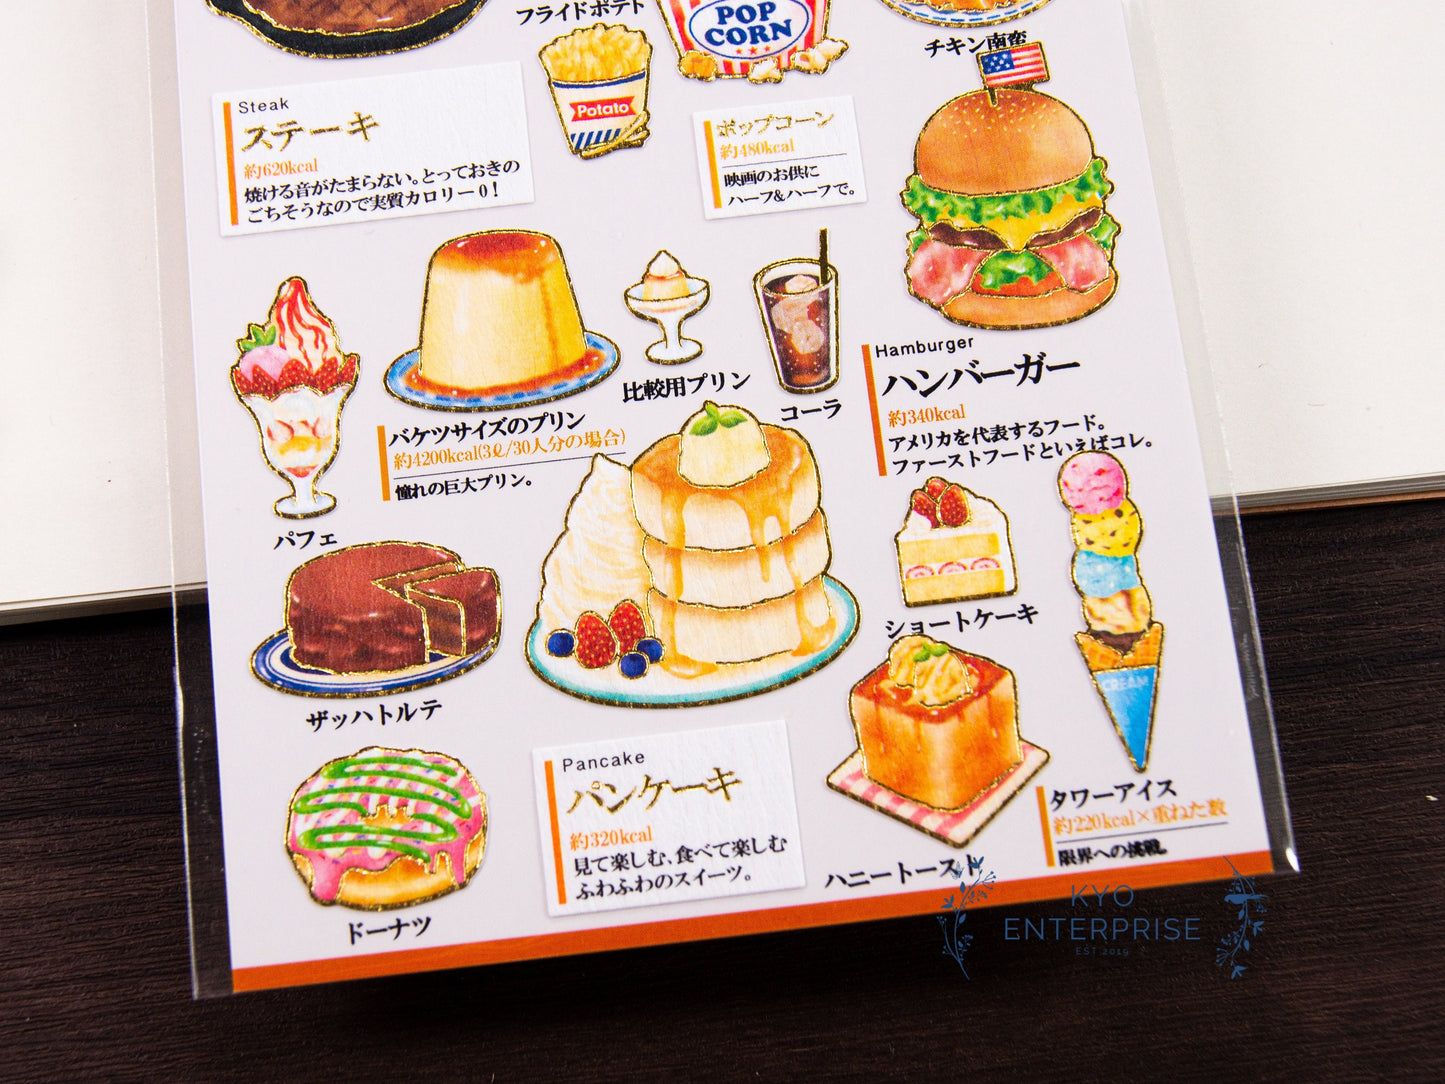 フライドポテト
POP
CORN
チキン南蛮
Steak
ステーキ
約620kcal
焼ける音がたまらない。とっておきの
ごちそうなので実質カロリー0!
Potato
ポップコーン
約480kcal
映画のお供に
ハーフ&ハーフで。
Hamburger
ハンバーガー
約340kcal
アメリカを代表するフード。
ファーストフードといえばコレ。
比較用プリン
コーラ
バケツサイズのプリン
約4200kcal(3ℓ/30人分の場合)
憧れの巨大プリン。
パフェ
ザッハトルテ
ショートケーキ
CREAM
Pancake
パンケーキ
約320kcal
見て楽しむ、食べて楽しむ
ふわふわのスイーツ。
タワーアイス
約220kcal×重ねた数
限界への挑戦。
ハニートースト
ドーナツ
KYO
ENTERPRISE
EST.2019